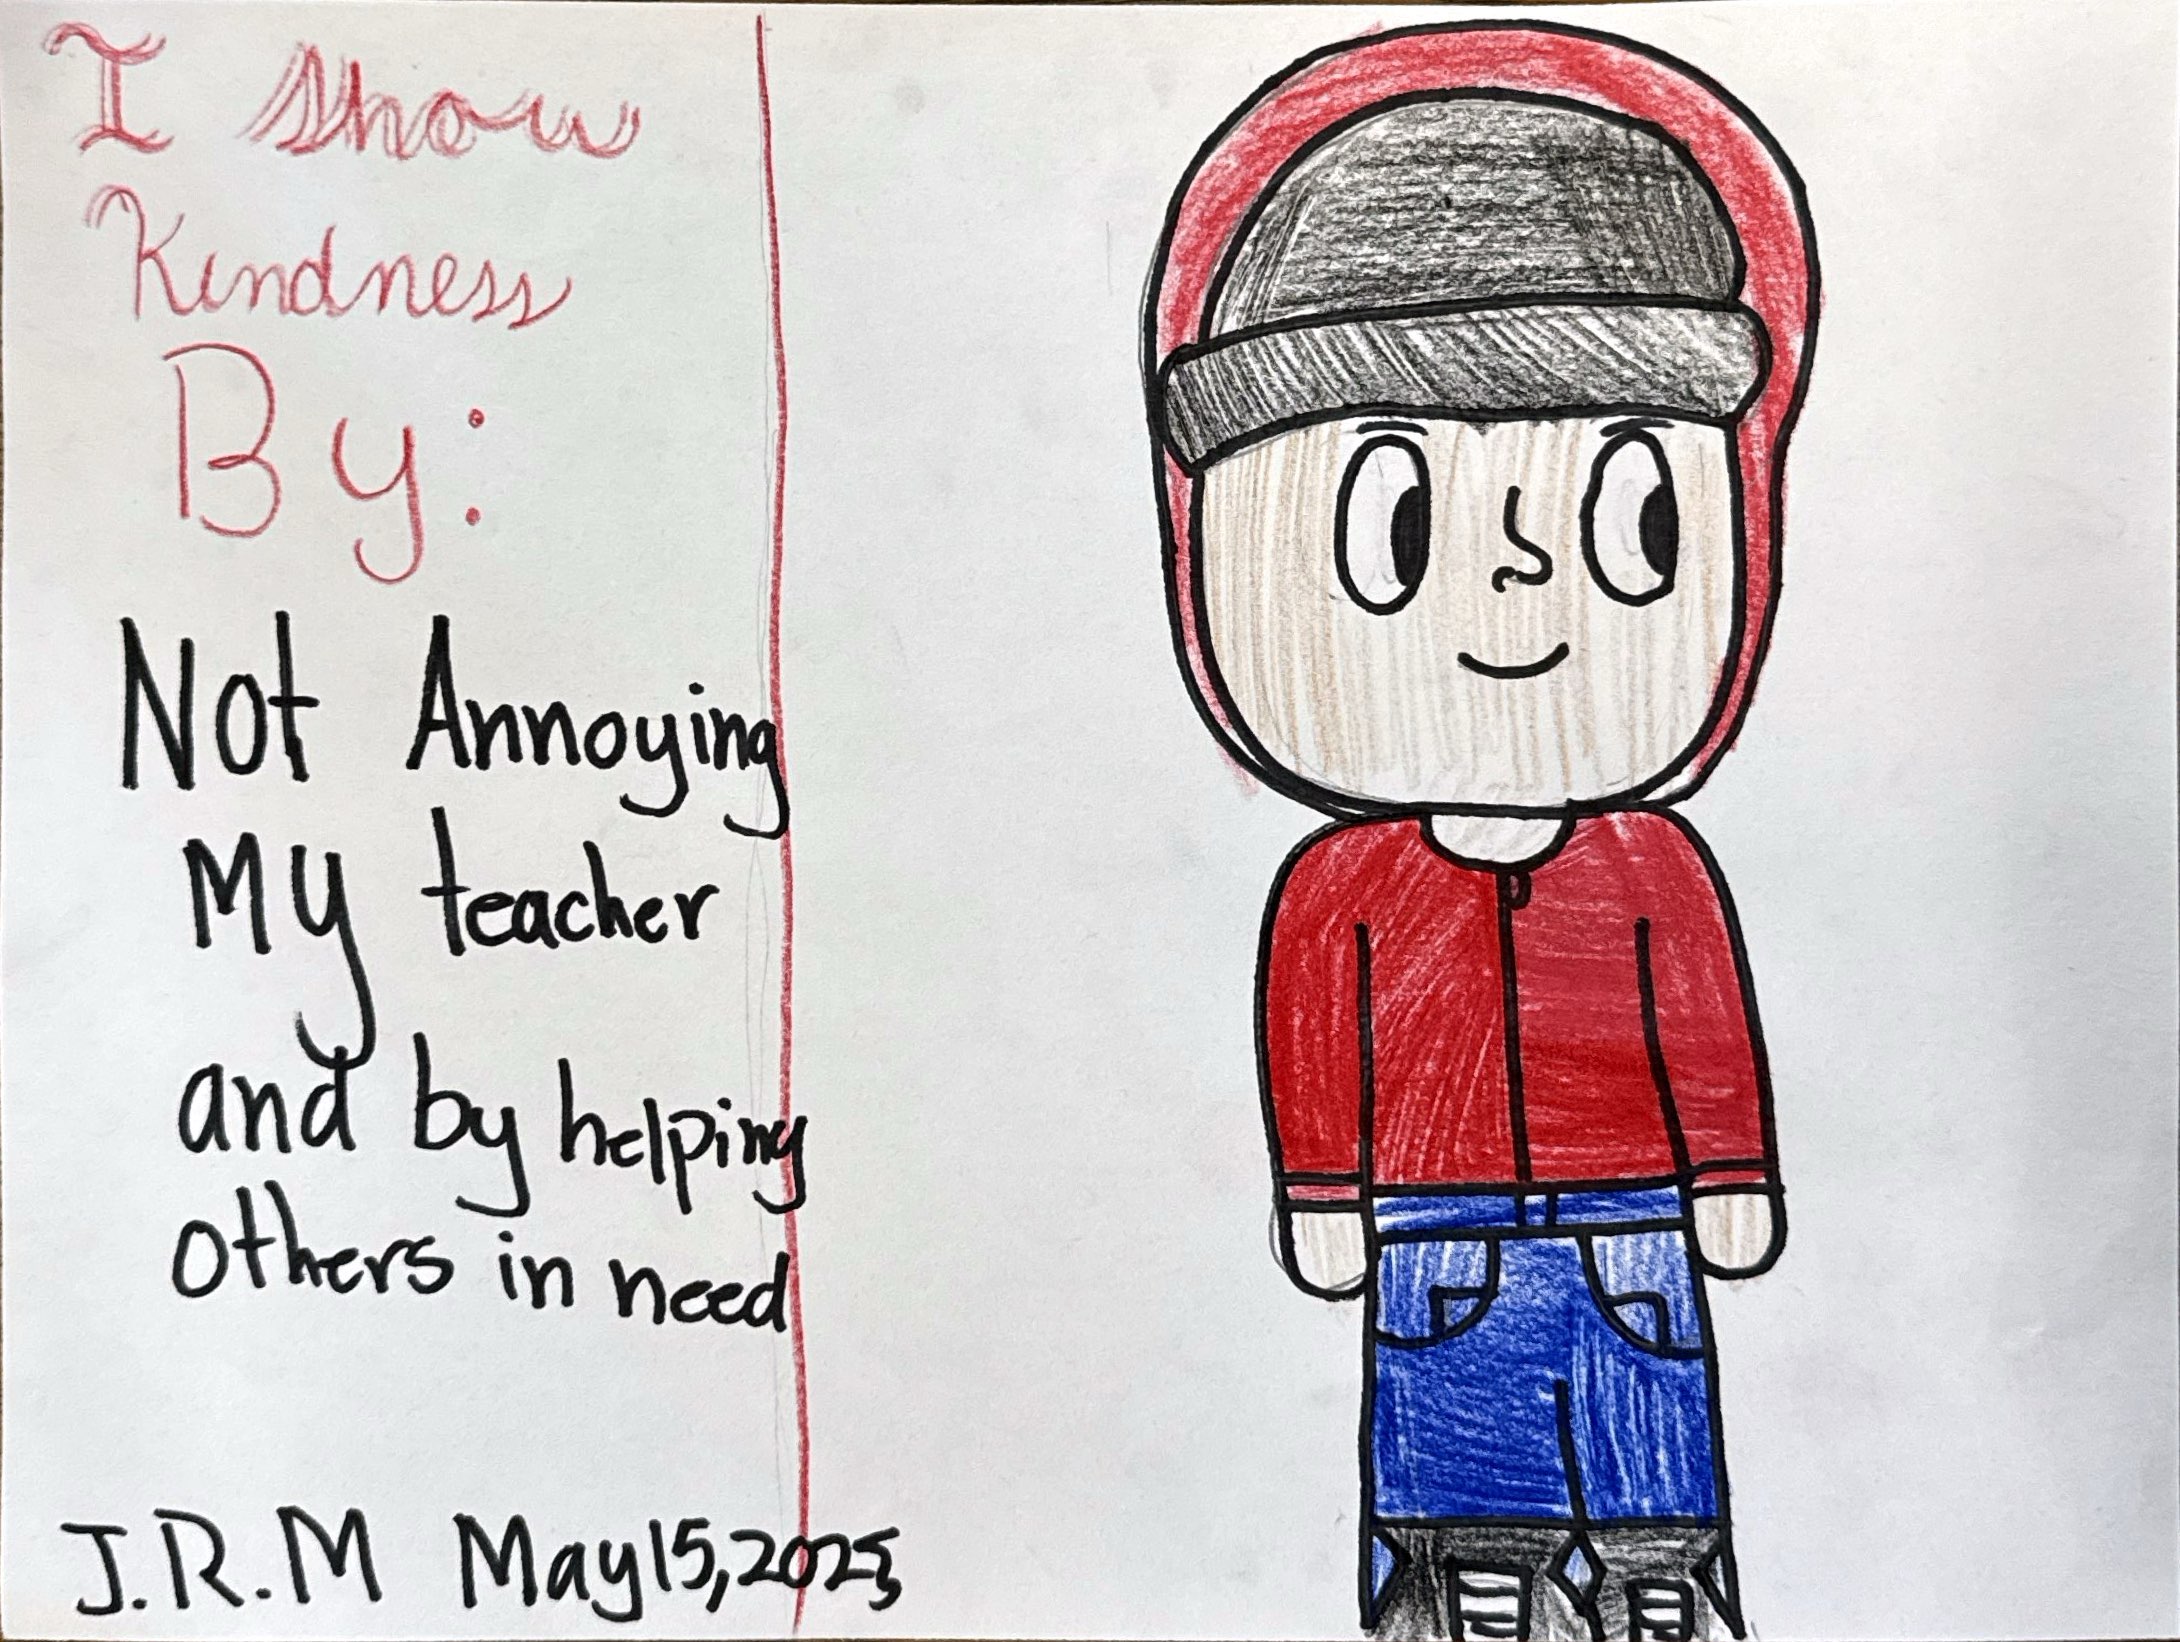 I show
Kindness
By:
Not Annoying
My teacher
and by helping
others in need
J.R.M May 15, 2025